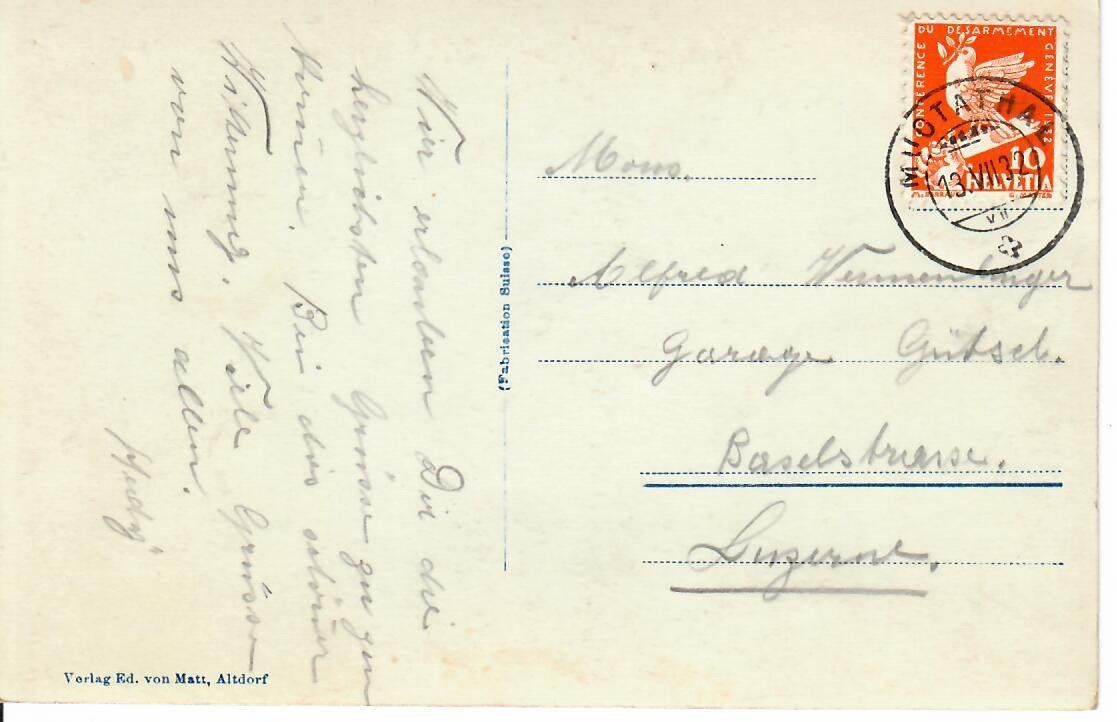 Wir erlauben Dir die
herzlichsten Grüsse zu
Bin
Witterung. Viele Grüsse
von uns allen.
Hedy
(Fabrication Suisse)
Verlag Ed. von Matt, Altdorf
CONFERENCE DU DESARMEMENT GENÈVE 1932
10
HELVETIA
MUOTATHAL
13.VII.32
VII
Mons.
Alfred
Garage Gütsch.
Baselstrasse.
Luzern.